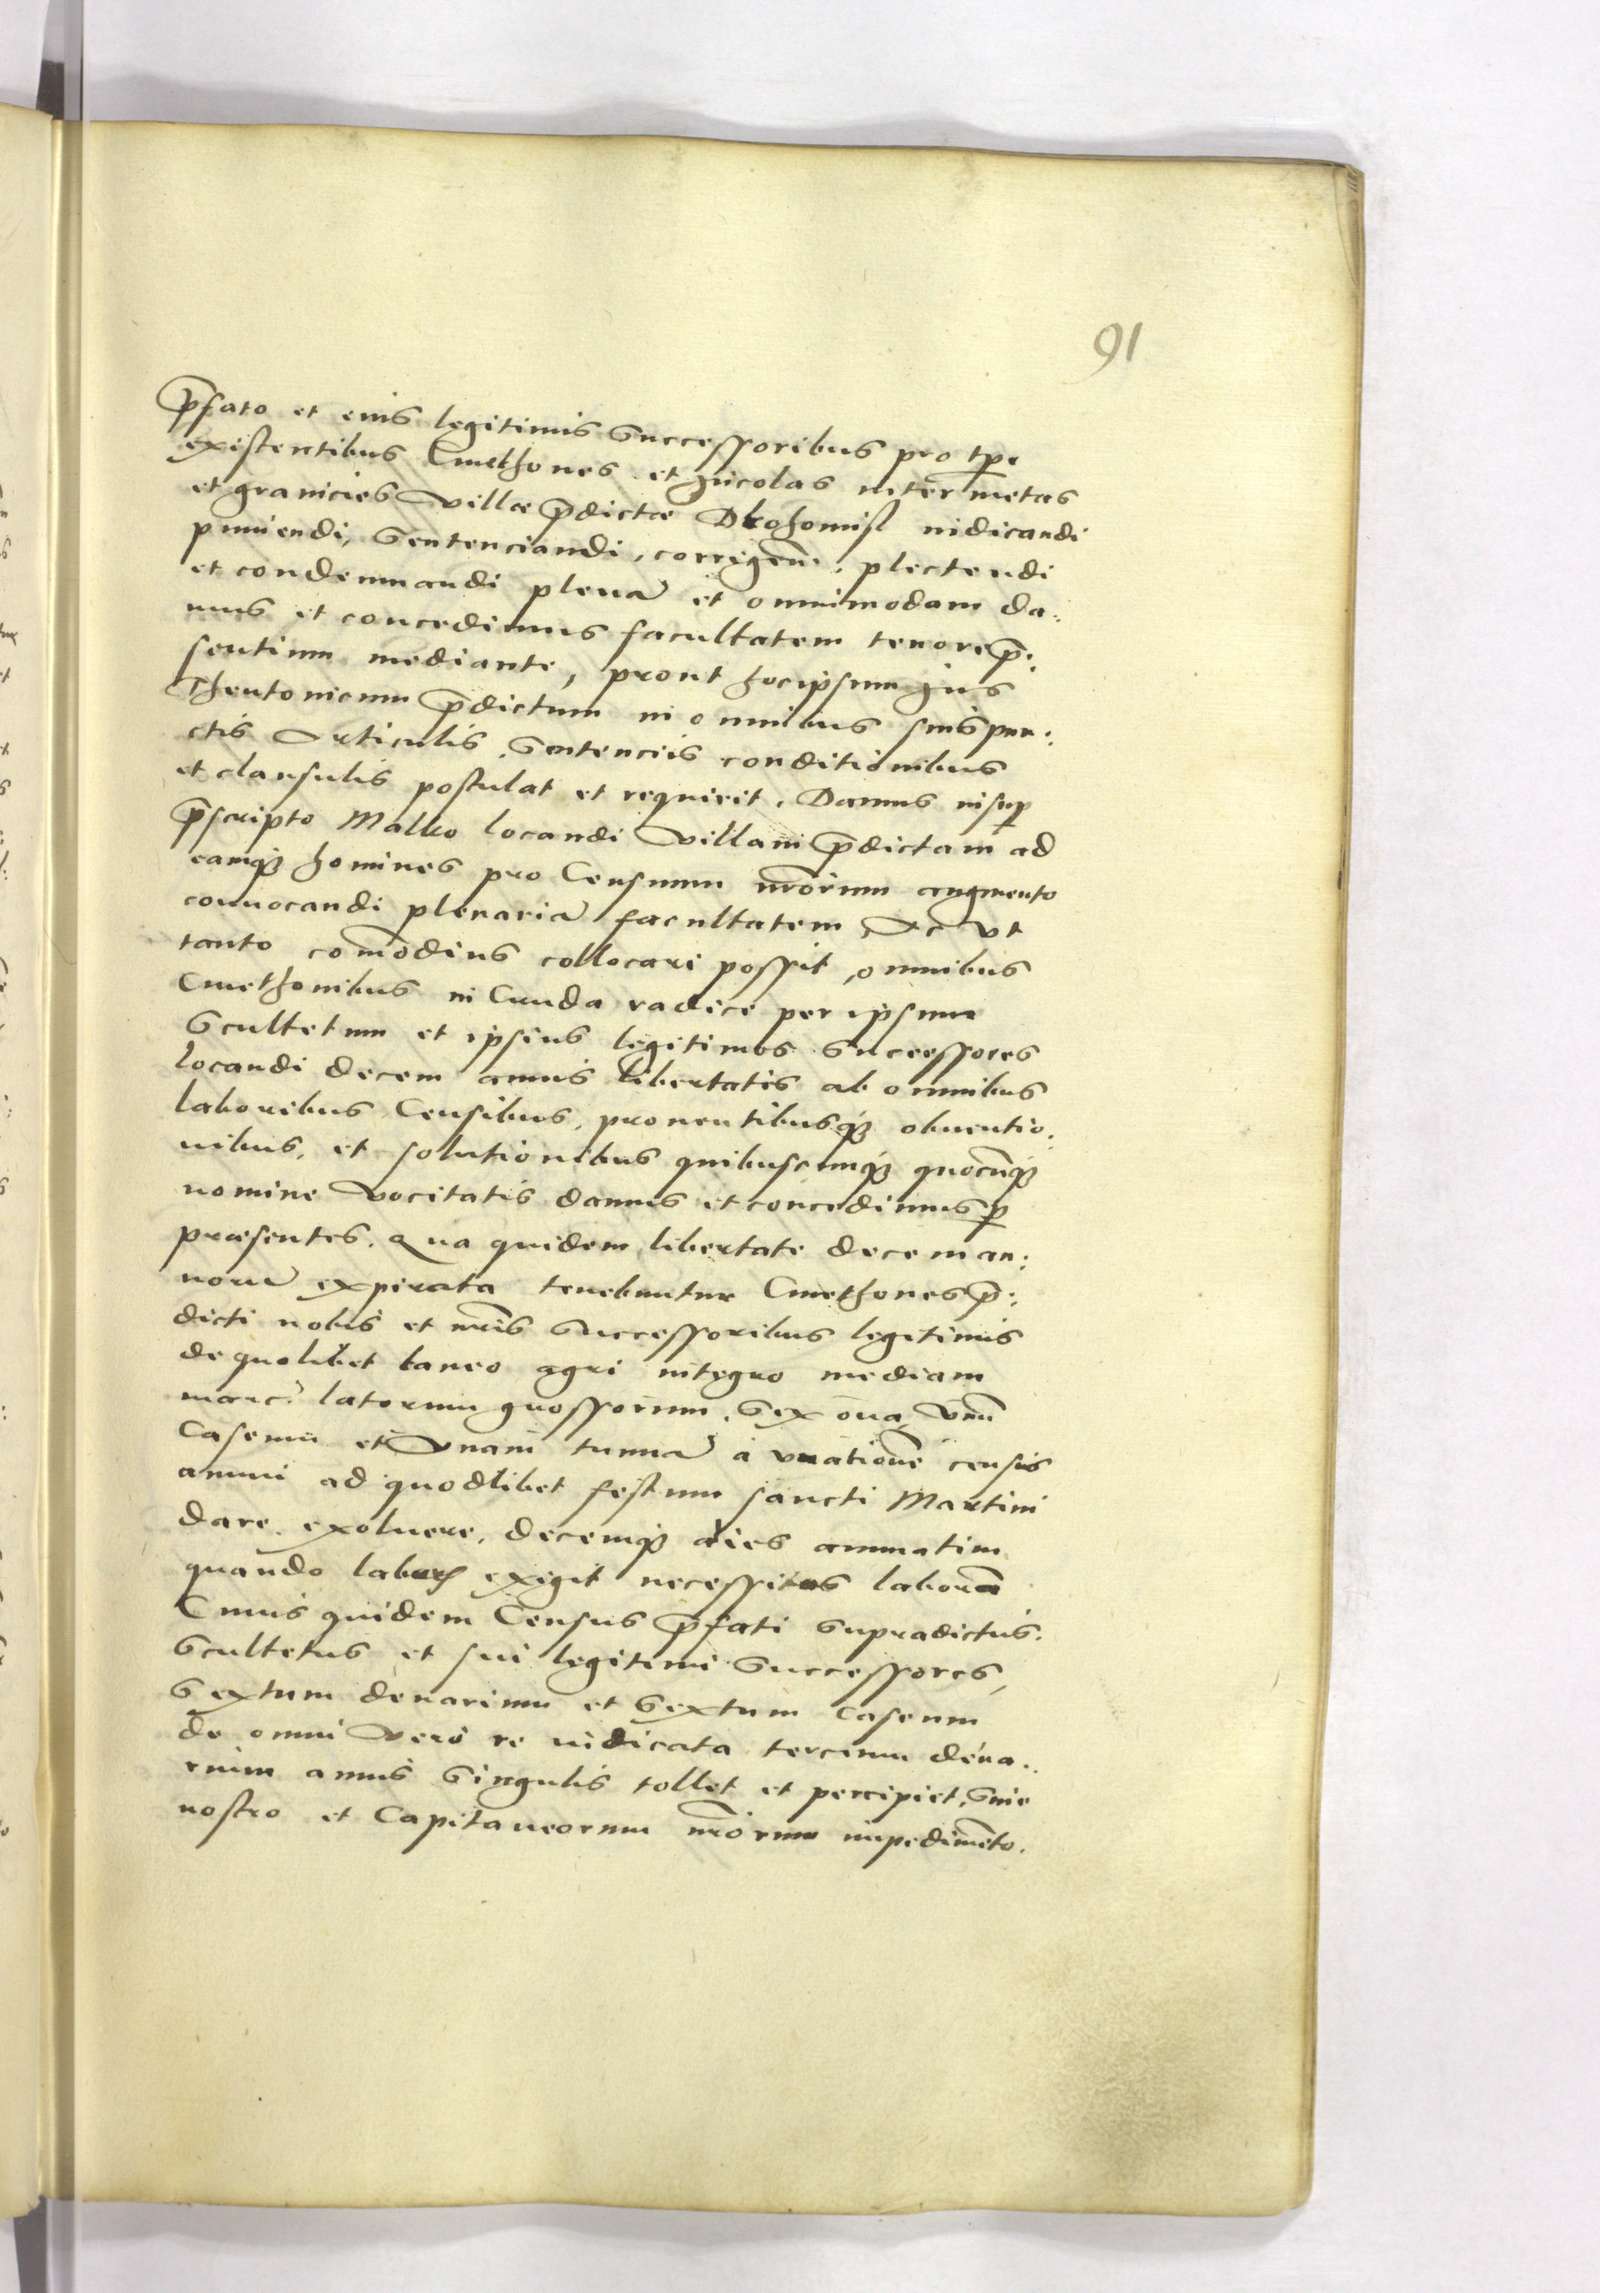 91
p̄fato et eius legitimis Successoribus pro tp̄e
existentibus Cmethones et Incolas inter metas
et granicies villæ p̄dictæ Drohomisl iudicandi
puniendi, Sentenciandi, corrigen̄. plectendi
et condemnandi plenā et omnimodam da:
mus et concedimus facultatem tenore p̄:
sentium mediante, prout hoc ipsum Ius
Theutonicum p̄dictum in omnibus suis pun:
ctis Articulis, Sentenciis conditionibus
et clausulis postulat et requirit. Damus insup̱
p̄scripto Malko locandi villam p̄dictam ad
eamq; homines pro Censuum nr̄orum augmento
convocandi plenariā facultatem, Ac vt
tanto com̄odius collocari possit, omnibus
Cmethonibus in Cruda radice per ipsum
Scultetum et ipsius legitimos Successores
locandi decem annis libertatis ab omnibus
laboribus Censibus, prouentibusq; obuentio:
nibus, et solutionibus quibuscunq; quocūq;
nomine vocitatis damus et concedimus p̱
præsentes. Qua quidem libertate decem an:
norū expirata tenebuntur Cmethones p̄:
dicti nobis et nr̄is Successoribus legitimis
de quolibet laneo agri integro mediam
marc. latorum grossorum, Sex oua, vnū
Caseum et vnam tunnā auenæ ratione census
annui ad quodlibet festum sancti Martini
dare, exoluere, decemq; dies annuatim
quando laboris exiget necessitas laborare
Cuius quidem Census p̄fati Supradictus
Scultetus et sui legitimi Successores,
Sextum denarium et Sextum Caseum
de omni vero re iudicata tercium dena..
rium annis Singulis tollet et percipiet, Sine
nostro et Capitaneorum nr̄orum impedimēto.